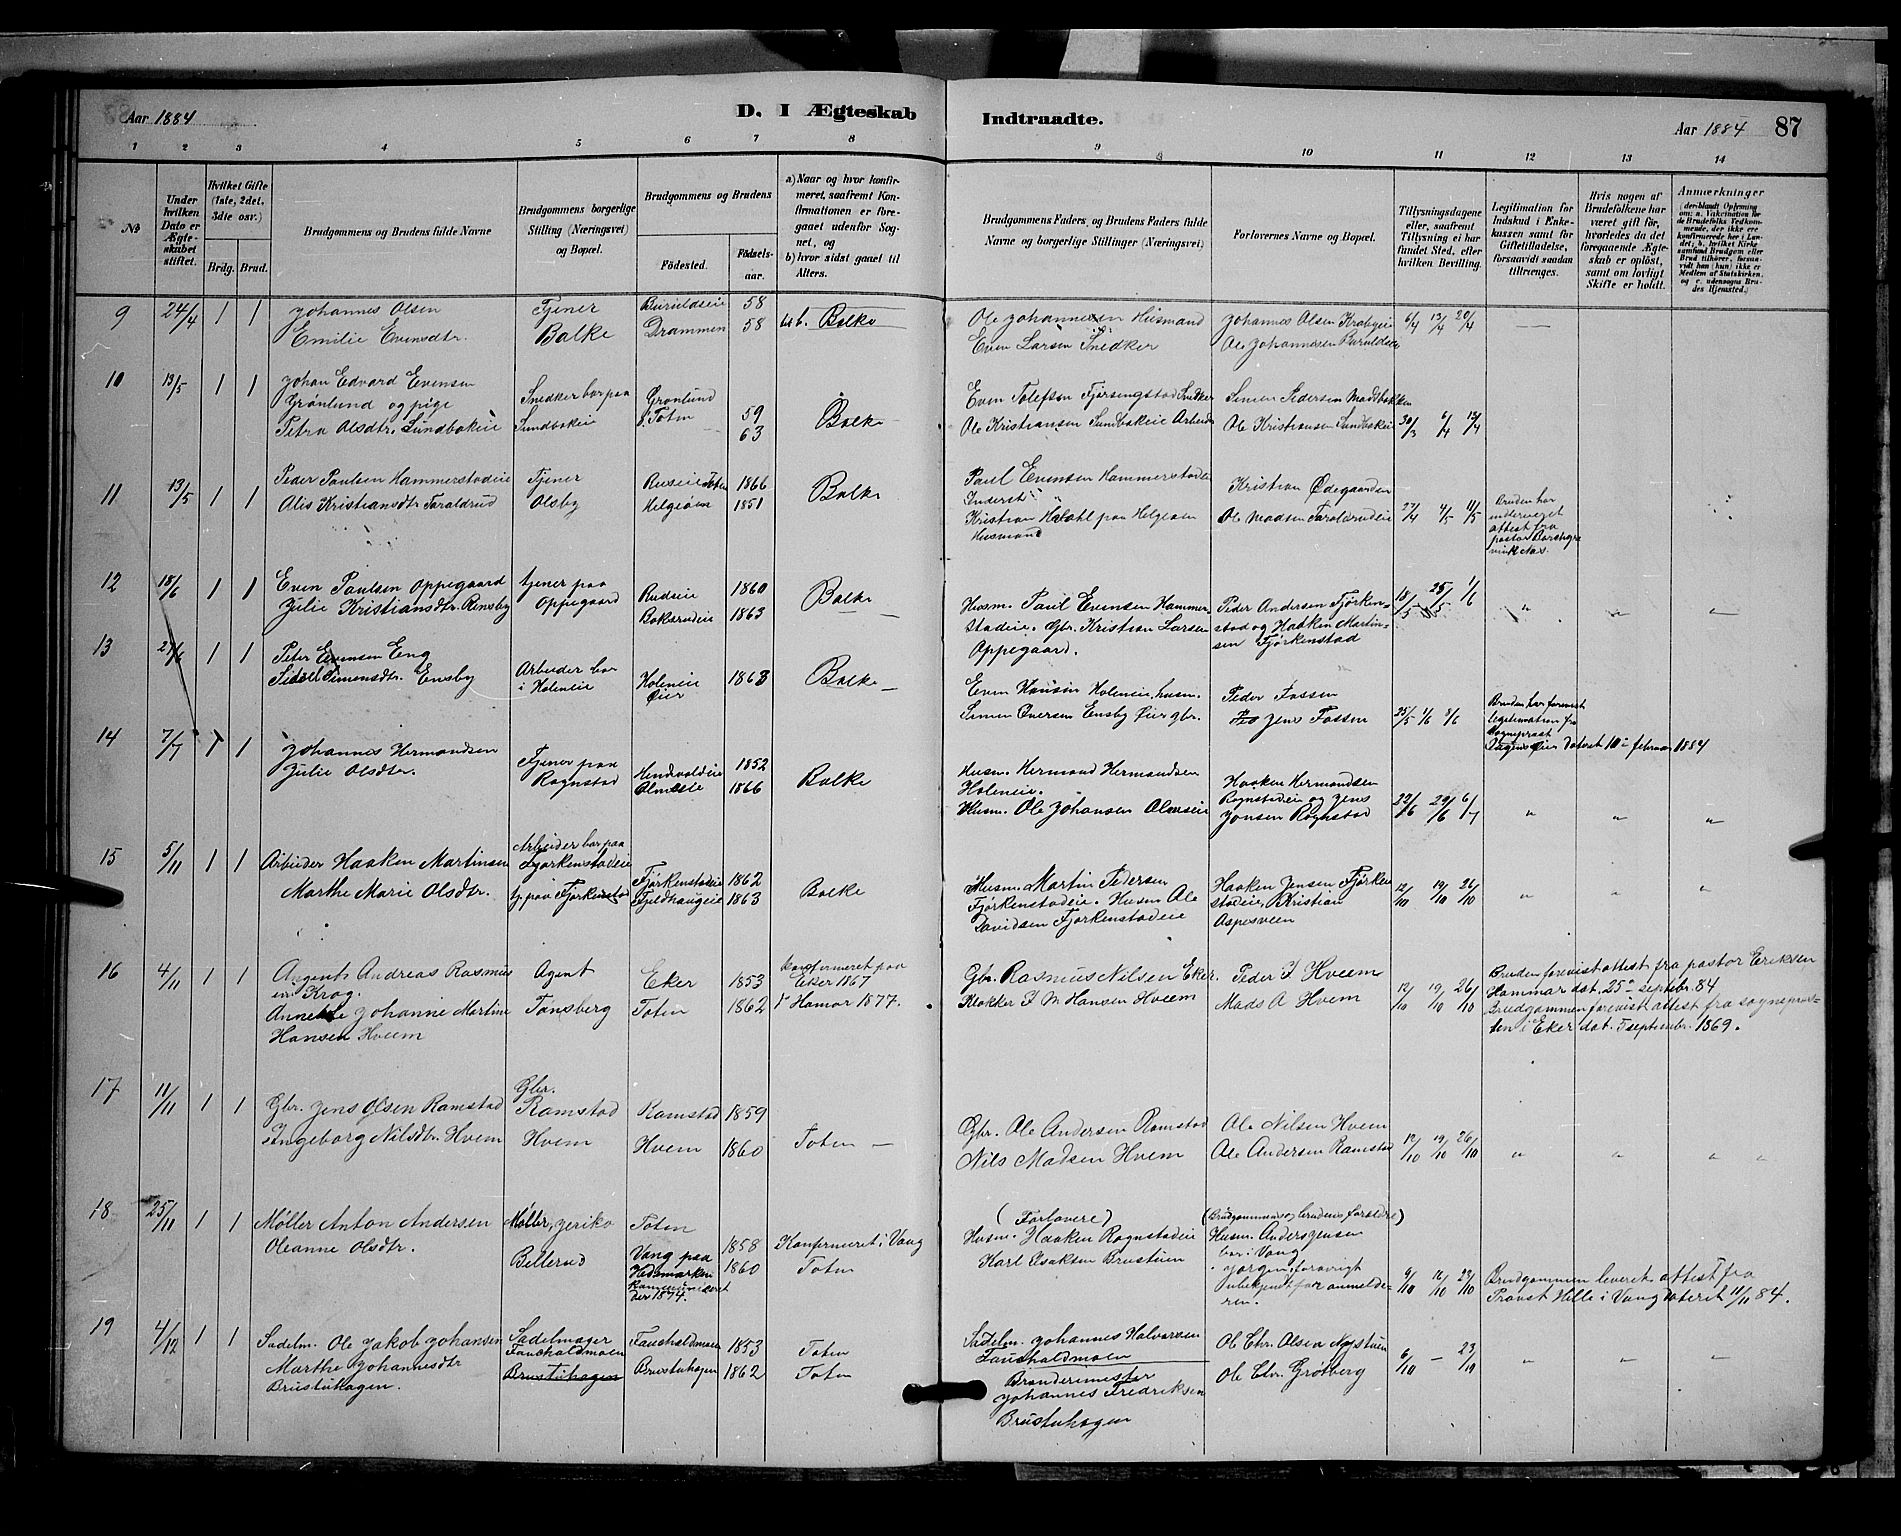 Aar 1884
D. I Ægteskab
Indtraadte.
Aar 1884
87
1 2 3 4 5 6 7 8 9 10 11 12 13 14
No
Under hvilken Dato er Ægteskabet stiftet.
Hvilket Gifte (1ste, 2det, 3die osv.)
Brdg. Brud.
Brudgommens og Brudens fulde Navne
Brudgommens borgerlige Stilling (Næringsvei) og Bopæl.
Brudgommens og Brudens
Fødested.
Fødselsaar.
a) Naar og hvor konfirmeret, saafremt Konfirmationen er foregaaet udenfor Sognet, og
b) hvor sidst gaaet til Alters.
Brudgommens Faders og Brudens Faders fulde Navne og borgerlige Stillinger (Næringsvei)
Forlovernes Navne og Bopæl.
Tillysningsdagene eller, saafremt Tillysning ei har fundet Sted, efter hvilken Bevilling.
Legitimation for Indskud i Enkekassen samt for Giftetilladelse, forsaavidt saadan tiltrænges.
Hvis nogen af Brudefolkene har været gift før, hvorledes da det foregaaende Ægteskab er opløst, samt om lovligt Skifte er holdt.
Anmærkninger
9 24/4 1 1 Johannes Olsen Tjener Buruldseie 58
Emilie Evensdtr. Balke Drammen 58 Balke
Ole Johannesen Husmand Johannes Olsen Krabyeie 6/4 13/4 20/4
Even Larsen Snedker Ole Johannesen Buruldseie
10 13/5 1 1 Johan Edvard Evensen
Grønlund og pige Snedker bor paa Grønlund
Petra Olsdtr. Sundbakeie Sundbakeie Ø. Toten 59 63 Balke
Even Tolefsen Fjørsingstad Snedker Simen Pedersen
Ole Kristiansen Sundbakeie Arbeider Ole Kristiansen Sundbakeie 30/3 6/4 13/4
11 13/5 1 1 Peder Paulsen Hammerstadeie Tjener 1866
Alis Kristiansdtr. Taraldrud Alsby Helgeøen 1851 Balke
Paul Evensen Hammerstadeie
Inderst Kristian Ødegaarden
Kristian paa Helgeøen Ole Madsen Taraldrudeie 27/4 4/5 11/5
Husmand
Bruden har underveget attest fra pastor
12 18/6 1 1 Even Paulsen Oppegaard tjener paa Rudeie 1860
Julie Kristiansdtr. Rensby Oppegaard Bakerudeie 1863 Balke
Husm. Paul Evensen Hammerstadeie. Gbr. Kristian Larsen Oppegaard.
Peder Andersen Fjørkenstad og Haaken Martinsen Fjørkenstad
18/5 25/5 1/6 " " "
13 27/6 1 1 Peter Evensen Eng
Sidsel Simensdtr. Ensby Arbeider bor i Holeneie Holeneie Øier 1863 Balke
Even Hansen Holeneie, husm. Peder Fossen
Simen Iversen Ensby Øier gbr. Jens Fossen 25/5 1/6 8/6
Bruden har forevist legitimation fra Sogneprest i Øier dateret 10de februar 1884
14 7/7 1 1 Johannes Hermandsen Tjener paa 1852
Julie Olsdtr. Rognstad Almeseie 1866 Balke
Husm. Hermand Hermandsen
Holeneie. Haaken Hermandsen Rognstadeie og Jens Jonsen Rognstad
Husm. Ole Johansen 22/6 29/6 6/7 " " "
15 5/11 1 1 Arbeider Haaken Martinsen Arbeider bor paa Fjørkenstadeie Fjørkenstadeie 1862
Marthe Marie Olsdtr. tj. paa Fjørkenstad Fjeldhaugeie 1863 Balke
Husm. Martin Pedersen Fjørkenstadeie. Husm. Ole Davidsen Fjørkenstadeie
Haaken Jensen Fjørkenstadeie, Kristian Aspesveen
12/10 19/10 26/10 " " "
16 4/11 1 1 Angent Andreas Rasmusen Krog Agent Eker 1853 Konfirmeret paa Eker 1867
Annette Johanne Martine Hansen Hveem Tønsberg Toten 1862 i Hamar 1877.
Gbr. Rasmus Nilsen Eker. Peder J. Hveem
Klokker J. M. Hansen Hveem Mads A. Hveem 12/10 19/10 26/10
Bruden forevist attest fra pastor Eriksen
Hammar dat. 25de septbr. 84
Brudgommen forevist attest fra sognepresten i Eker dat. 5 septembr. 1869.
17 11/11 1 1 Gbr. Jens Olsen Ramstad Gbr. Ramstad Ramstad 1859
Ingeborg Nilsdtr. Hvem Hvem Hvem 1860 Toten
Gbr. Ole Andersen Ramstad Ole Nilsen Hvem
Nils Madsen Hvem Ole Andersen Ramstad 12/10 19/10 26/10 " " " "
18 25/11 1 1 Møller Anton Andersen Møller, Jeriko Toten 1858 Konfirmeret i Vang
Oleanne Olsdtr. Billerud Vang paa Hedemarken 1860 Toten
1874.
(Forlovere) (Brudgommens og brudens forældre)
Husm. Haaken Rognstadeie Husm. Anders Jensen bor i Vang
Karl Isaksen Brustuen
Jørgen, forøvrigt ubekjendt for anmelderen.
9/10 16/10 23/10
Brudgommen leveret attest fra
Provst Hille i Vang dateret 11/11 84.
19 4/12 1 1 Sadelm. Ole Jakob Johansen Sadelmager Fauchaldmoen Fauchaldmoen 1853 Toten
Marthe Johannesdtr. Brustuhagen. Brustuhagen Brustuhagen 1862 Toten
Sadelm. Johannes Halvorsen Fauchaldmoen Ole Chr. Olsen Nøjstuen
Brænderimester Johannes Fredriksen Brustuhagen
Ole Chr. Grøtberg 6/10 — 23/10 " " "